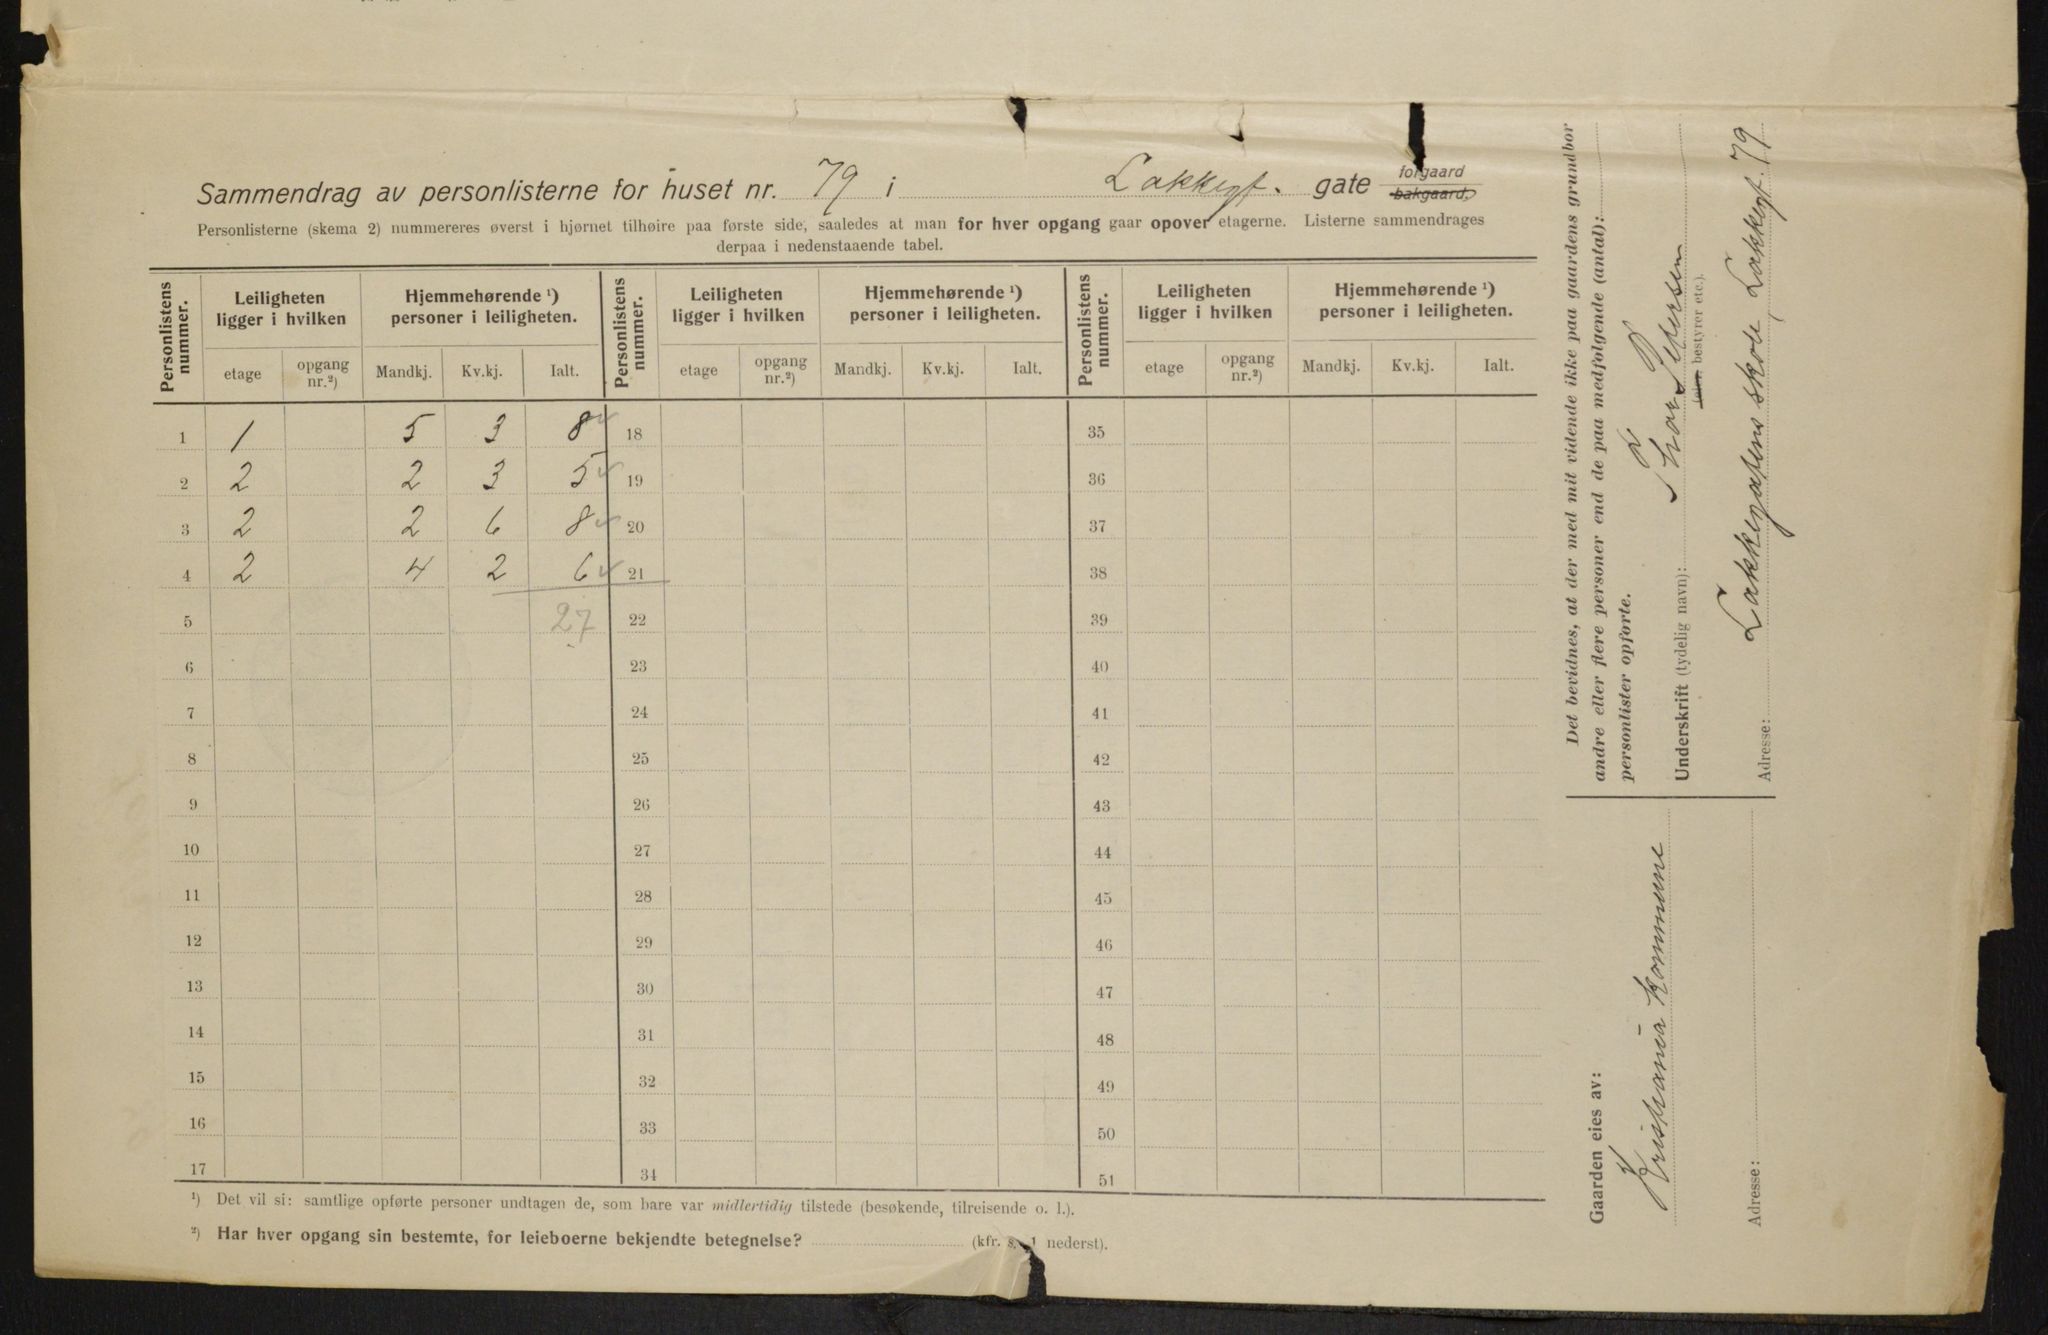 Sammendrag av personlisterne for huset nr. 79 i Lakkegt. gate forgaard bakgaard.
Personlisterne (skema 2) nummereres øverst i hjørnet tilhøire paa første side, saaledes at man for hver opgang gaar opover etagerne. Listerne sammendrages
derpaa i nedenstaaende tabel.
Personlistens nummer. Leiligheten ligger i hvilken Hjemmehørende ¹) personer i leiligheten. Personlistens nummer. Leiligheten ligger i hvilken Hjemmehørende ¹) personer i leiligheten. Personlistens nummer. Leiligheten ligger i hvilken Hjemmehørende ¹) personer i leiligheten.
etage opgang nr.²) Mandkj. Kv.kj. Ialt. etage opgang nr.²) Mandkj. Kv.kj. Ialt. etage opgang nr.²) Mandkj. Kv.kj. Ialt.
1 1 5 3 8 18 35
2 2 2 3 5 19 36
3 2 2 6 8 20 37
4 2 4 2 6 21 38
5 27 22 39
6 23 40
7 24 41
8 25 42
9 26 43
10 27 44
11 28 45
12 29 46
13 30 47
14 31 48
15 32 49
16 33 50
17 34 51
¹) Det vil si: samtlige opførte personer undtagen de, som bare var midlertidig tilstede (besøkende, tilreisende o. l.).
²) Har hver opgang sin bestemte, for leieboerne bekjendte betegnelse? (kfr. s. 1 nederst).
Det bevidnes, at der med mit vidende ikke paa gaardens grundbor
andre eller flere personer end de paa medfølgende (antal):
personlister opførte.
Underskrift (tydelig navn): Thor Petersen
(eier, bestyrer etc.).
Lakkegatens skole, Lakkegt. 79
Adresse:
Gaarden eies av:
Kristiania kommune
Adresse: